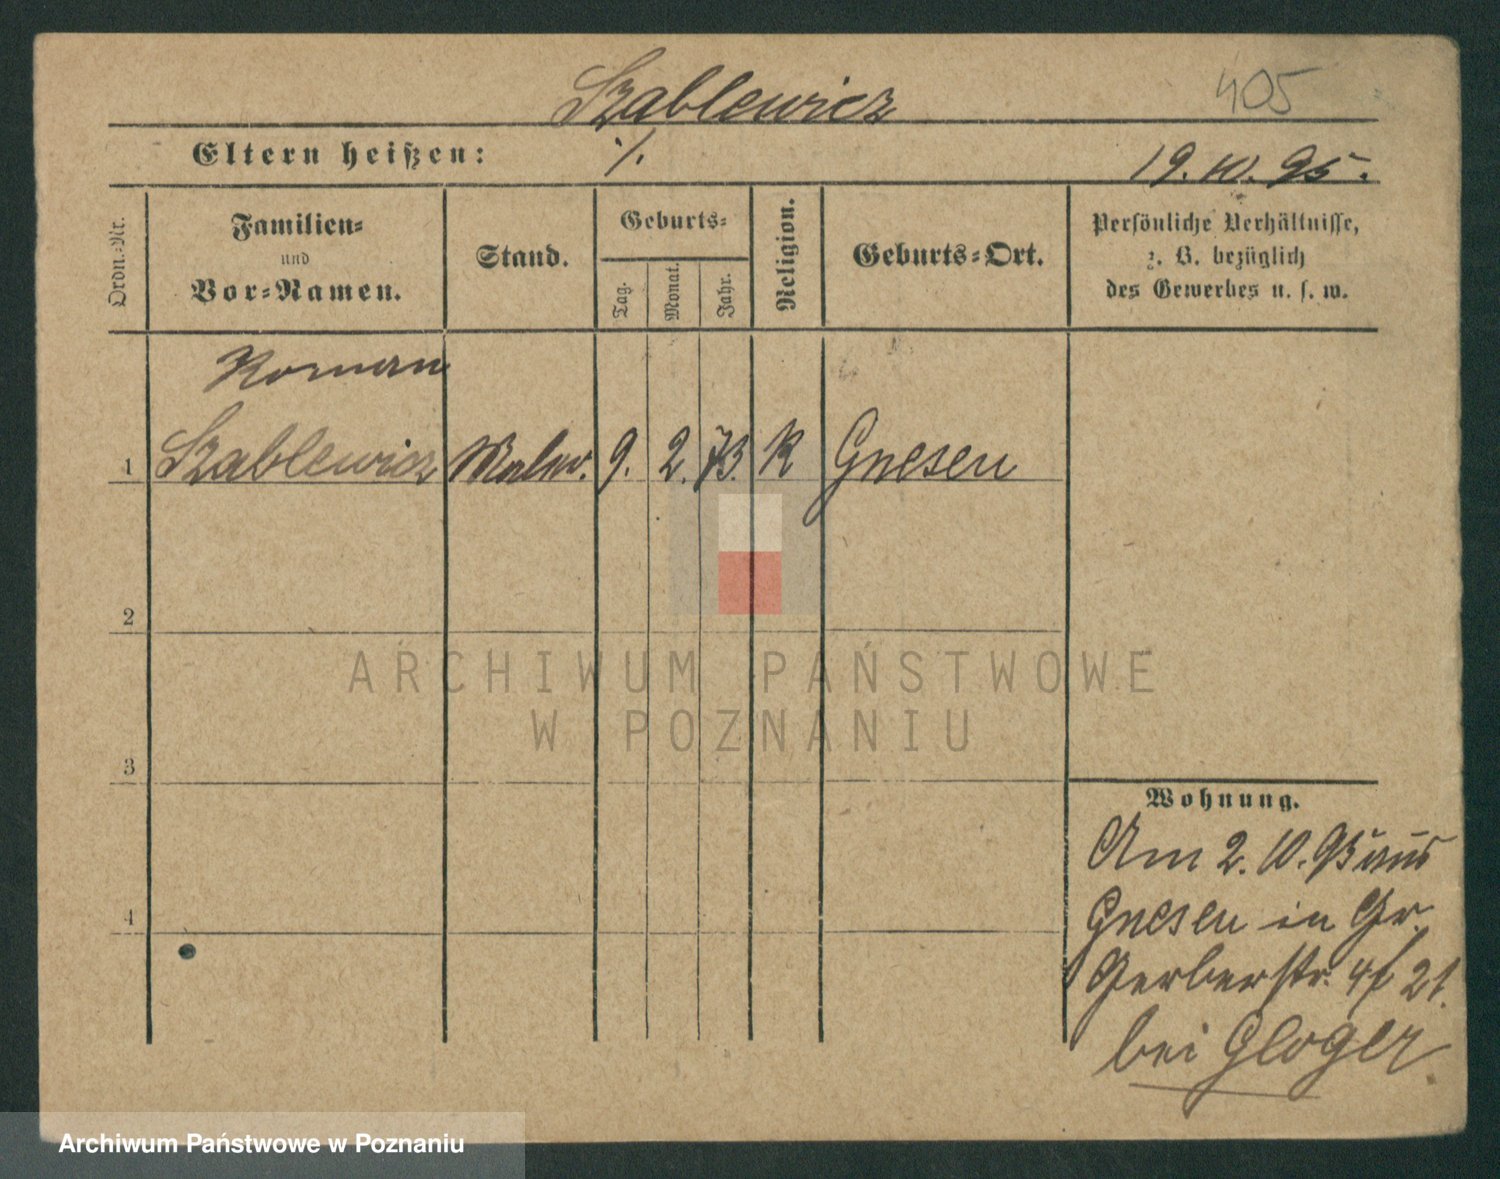 Szablewicz
405
Eltern heißen: ·/.
19.10.95.
Ordn.-Nr.
Familien-
und
Vor-Namen.
Stand.
Geburts-
Tag.
Monat.
Jahr.
Religion.
Geburts-Ort.
Persönliche Verhältnisse,
z. B. bezüglich
des Gewerbes u. s. w.
Roman
1 Szablewicz Maler. 9. 2. 73. K Gnesen
2
3
4
Wohnung.
Am 2.10.95 aus
Gnesen in Gr.
Gerberstr. 21.
bei Gloger
ARCHIWUM PAŃSTWOWE
W POZNANIU
Archiwum Państwowe w Poznaniu